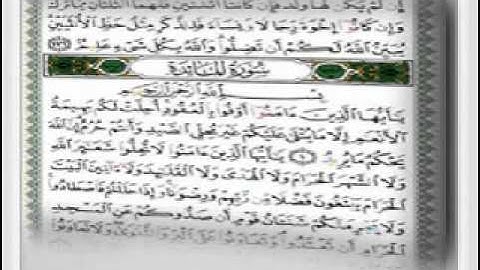 إن لم يكن لها ولد فإن كانتا اثنتين فلهما الثلثان مما ترك
وإن كانوا إخوة رجالا ونساء فللذكر مثل حظ الأنثيين
يبين الله لكم أن تضلوا والله بكل شيء عليم ١٧٦
سورة المائدة
بسم الله الرحمن الرحيم
يأيها الذين ءامنوا أوفوا بالعقود أحلت لكم بهيمة
الأنعم إلا ما يتلى عليكم غير محلي الصيد وأنتم حرم إن الله
يحكم ما يريد ١ يأيها الذين ءامنوا لا تحلوا شعئر الله
ولا الشهر الحرام ولا الهدي ولا القلئد ولا ءامين البيت
الحرام يبتغون فضلا من ربهم ورضونا وإذا حللتم فاصطادوا
ولا يجرمنكم شنئان قوم أن صدوكم عن المسجد
الحرام أن تعتدوا وتعاونوا على البر والتقوى ولا تعاونوا